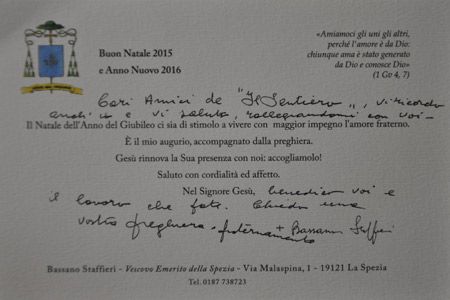 Buon Natale 2015
e Anno Nuovo 2016
«Amiamoci gli uni gli altri,
perché l'amore è da Dio:
chiunque ama è stato generato
da Dio e conosce Dio»
(1 Gv 4, 7)
Cari Amici de "Il Sentiero", vi ricordo
anch'io e vi saluto, rallegrandomi con voi-
Il Natale dell'Anno del Giubileo ci sia di stimolo a vivere con maggior impegno l'amore fraterno.
È il mio augurio, accompagnato dalla preghiera.
Gesù rinnova la Sua presenza con noi: accogliamolo!
Saluto con cordialità ed affetto.
Nel Signore Gesù, benedico voi e
il lavoro che fate. Chiedo una
vostra preghiera - fraternamente + Bassano Staffieri
Bassano Staffieri - Vescovo Emerito della Spezia - Via Malaspina, 1 - 19121 La Spezia
Tel. 0187 738723